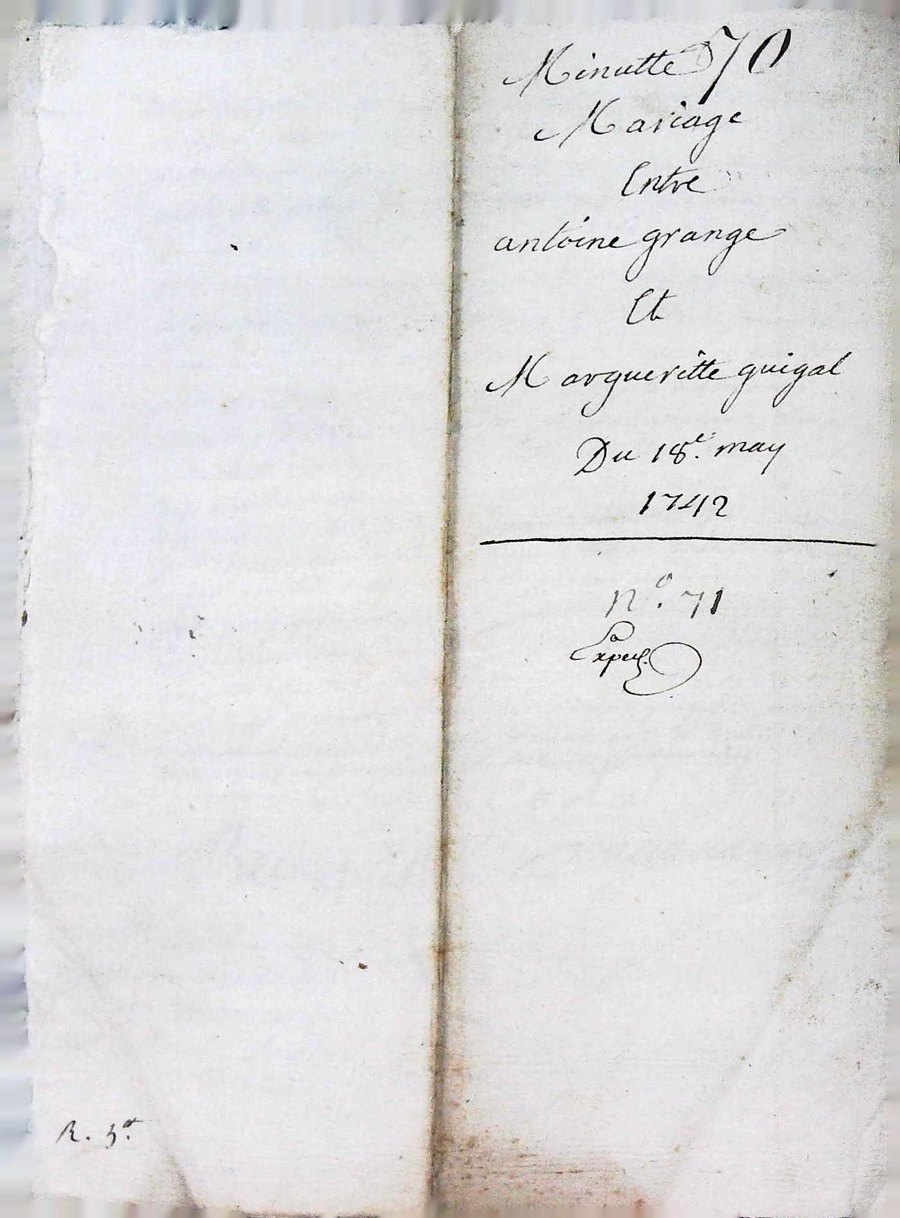 Minutte 70
Mariage
Entre
antoine grange
Et
Margueritte guigal
Du 18.e may
1742
No. 71
Exped.
R. 3tt.